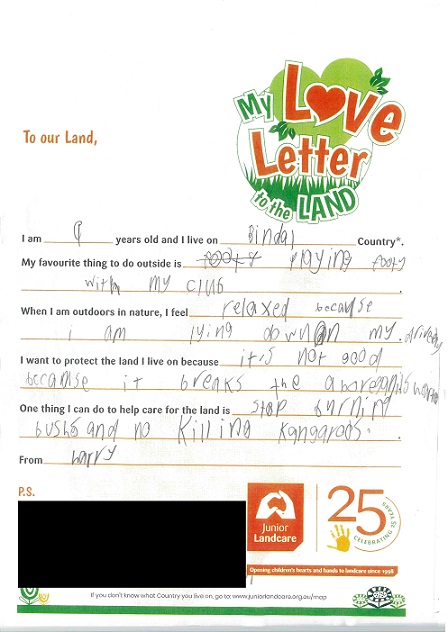 My Love
Letter
to the LAND
To our Land,
I am 9 years old and I live on Bindal Country*.
My favourite thing to do outside is playing footy
with my club .
When I am outdoors in nature, I feel relaxed because
i am lying down on my .
I want to protect the land I live on because it is not good
because it breaks the
One thing I can do to help care for the land is stop burning
bushs and no killing kangaroos .
From harry
P.S.
Junior
Landcare
25 YEARS
CELEBRATING
Opening children's hearts and hands to landcare since 1998
If you don't know what Country you live on, go to: www.juniorlandcare.org.au/map